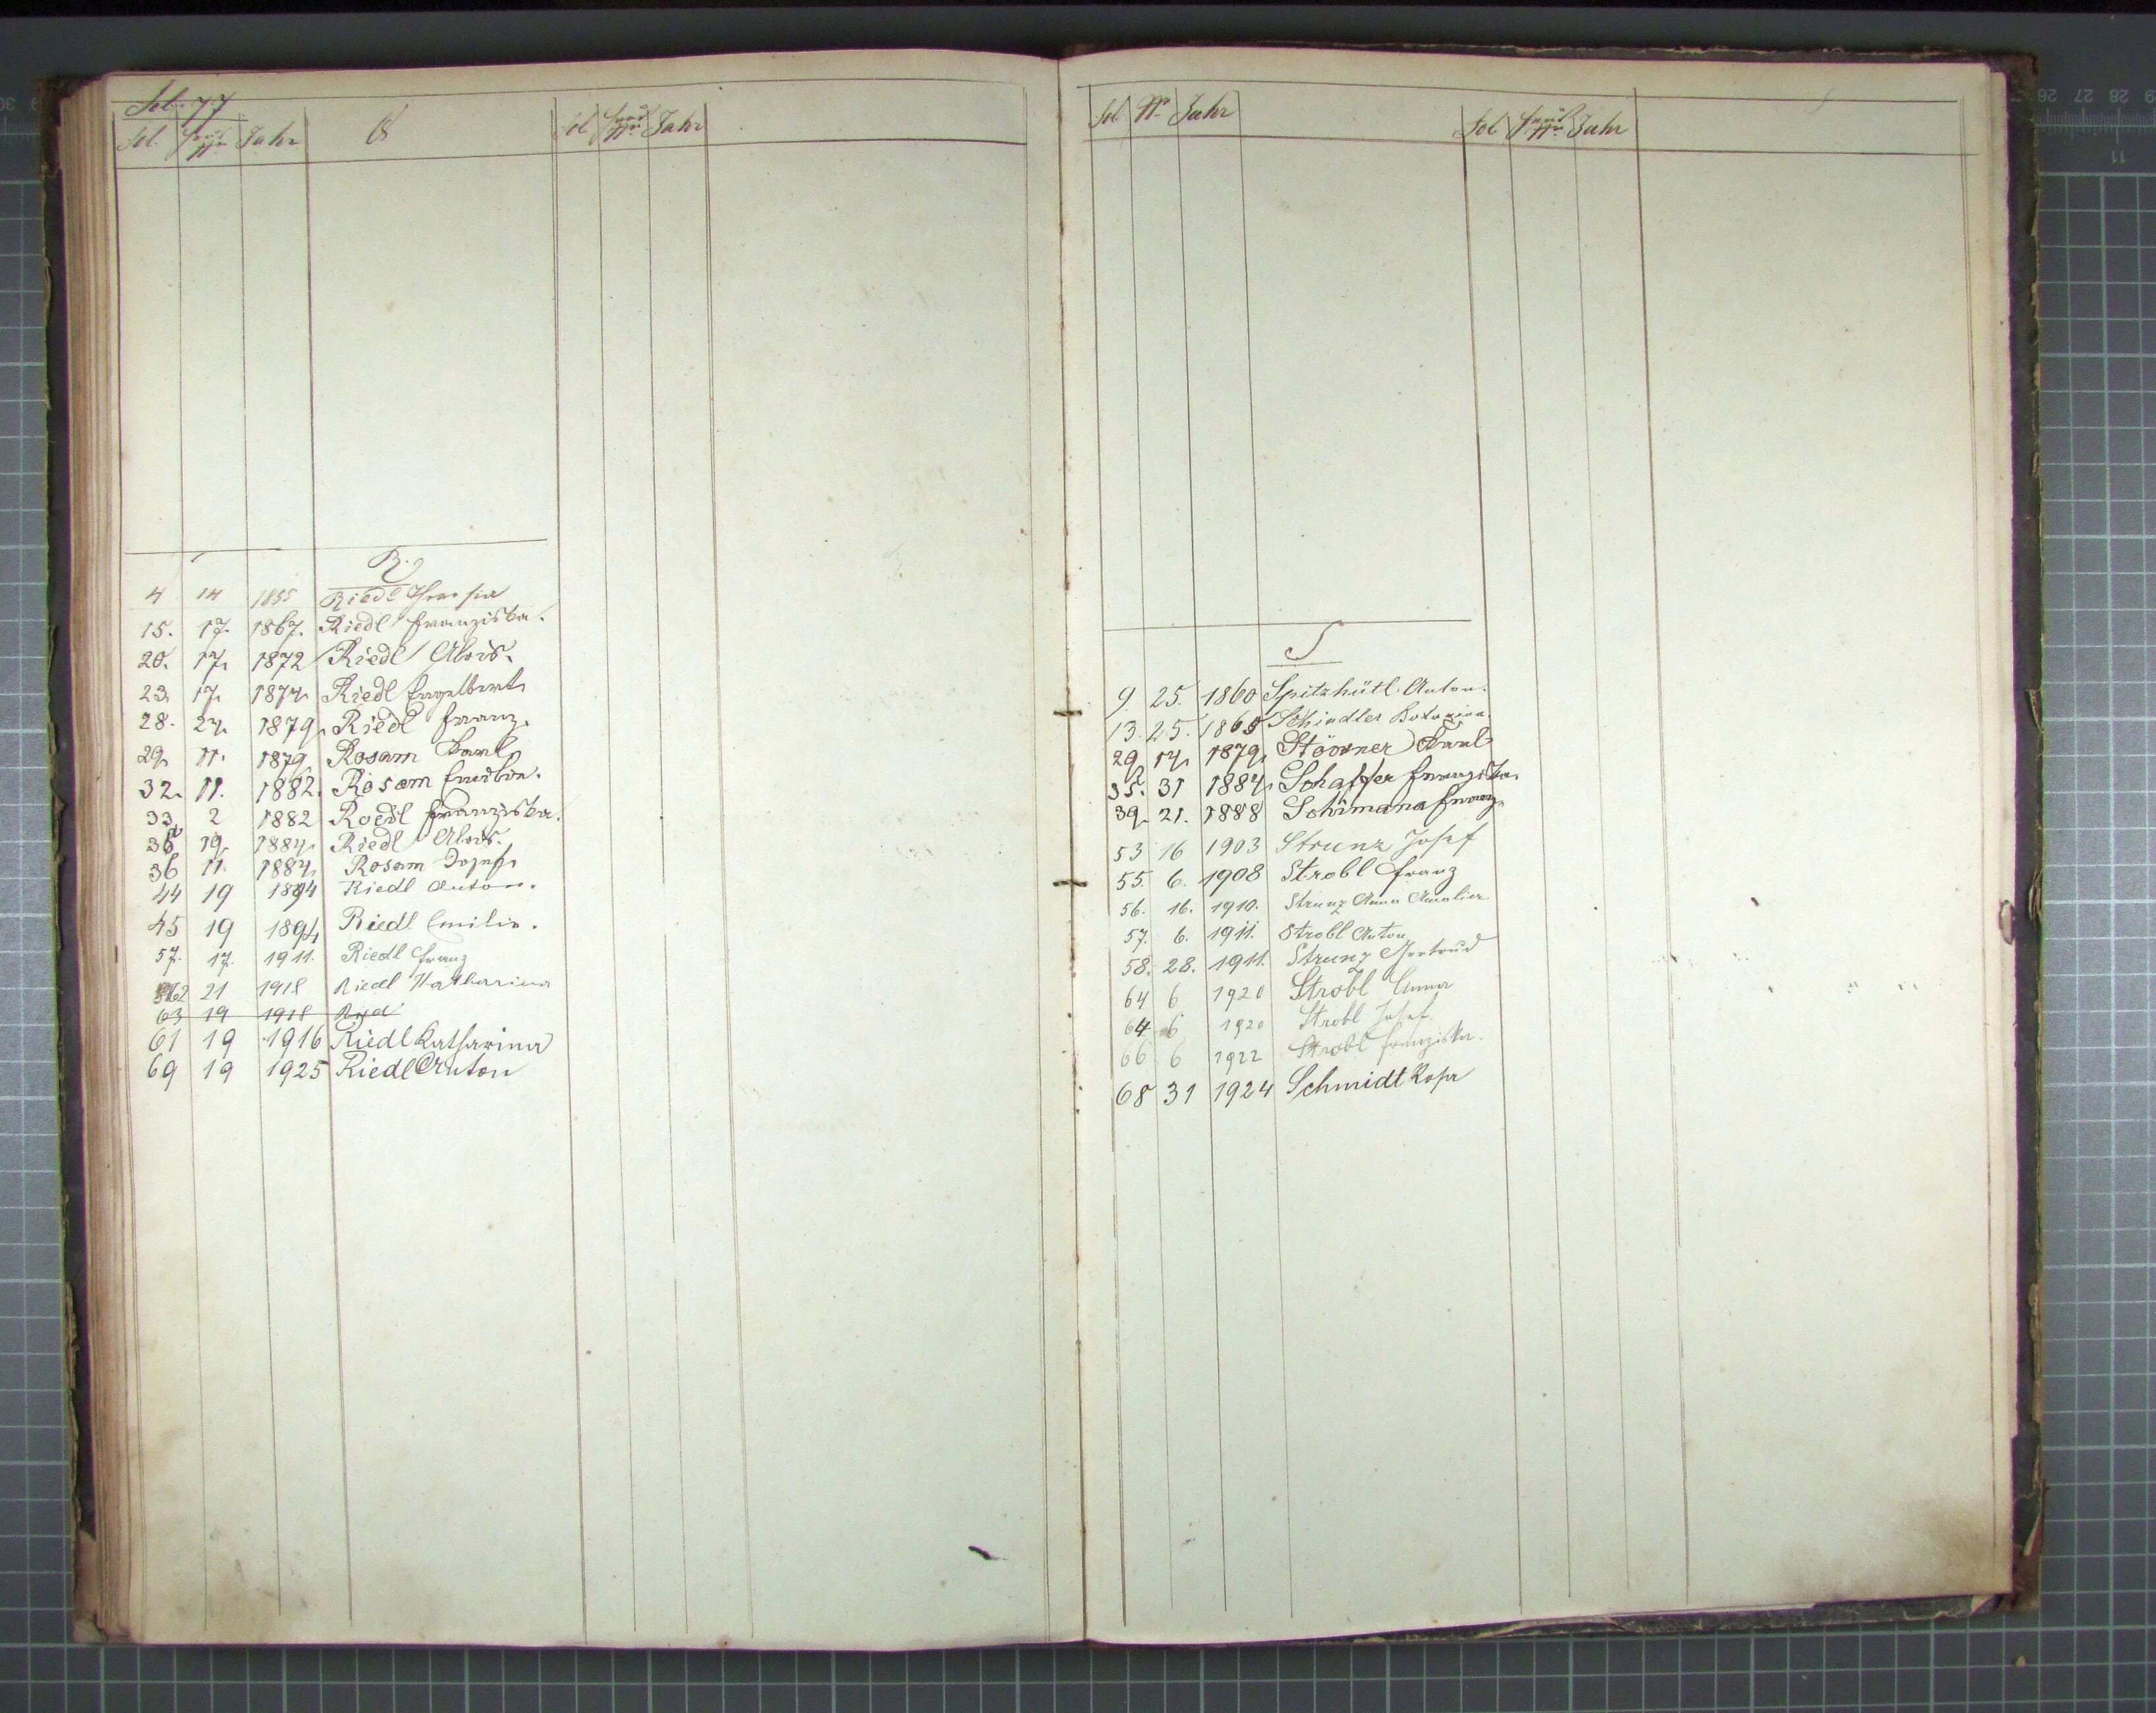 Fol. 77
Fol. Haus Nr. Jahr Q Fol. Haus Nr. Jahr
R.
4 14 1855 Riedl Theresia
15. 17. 1867. Riedl Franziska.
20. 17. 1872 Riedl Alois.
23. 17. 1874. Riedl Engelbert.
28. 24. 1879. Riedl Franz.
29. 11. 1879 Rosam Karl.
32. 11. 1882. Rosam
33. 2 1882 Riedl Franziska.
36 19. 1884. Riedl Alois.
36 11. 1884. Rosam Josef.
44 19 1894 Riedl Anton.
45 19 1894 Riedl Emilie.
57. 17. 1911. Riedl Franz
62 21 1918 Riedl Katharina
63 19 1918 Riedl
61 19 1916 Riedl Katharina
69 19 1925 Riedl Anton
Fol. Nr. Jahr Fol. Haus Nr. Jahr
S
9. 25. 1860 Spitzhütl Anton.
13. 25. 1865 Schindler
29. 14. 1879. Störner Karl
35. 31 1884. Schaffer Franziska.
39. 21. 1888 Schimana Franz.
53 16 1903 Strunz Josef
55. 6. 1908 Strobl Franz
56. 16. 1910. Strunz Anna Amalia
57. 6. 1911. Strobl Anton
58. 28. 1911. Strunz Gertrud
64 6 1920 Strobl Anna
64. 6 1920 Strobl Josef.
66 6 1922 Strobl Franziska.
68 31 1924 Schmidt Rosa